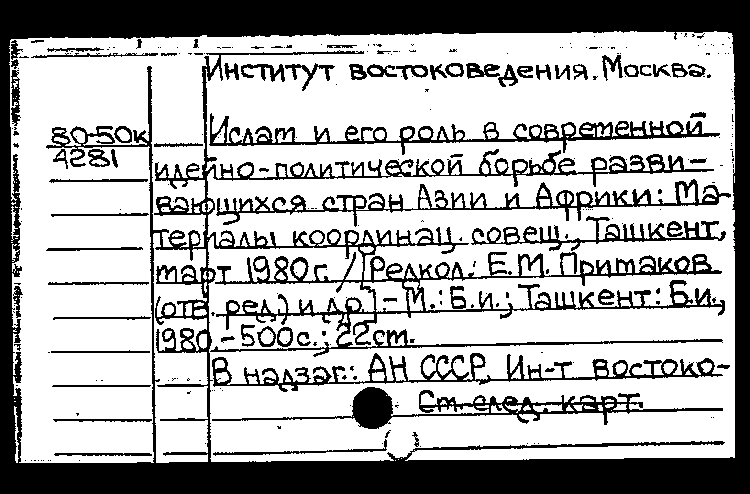 Институт востоковедения. Москва.
80-50к
4281
Ислам и его роль в современной
идейно-политической борьбе разви-
вающихся стран Азии и Африки: Ма-
териалы координац. совещ., Ташкент,
март 1980г. / [Редкол.: Е.М. Примаков
(отв. ред.) и др.] - М.: Б.и.; Ташкент: Б.и.,
1980. - 500с.; 22см.
В надзаг.: АН СССР, Ин-т востоко-
См. след. карт.